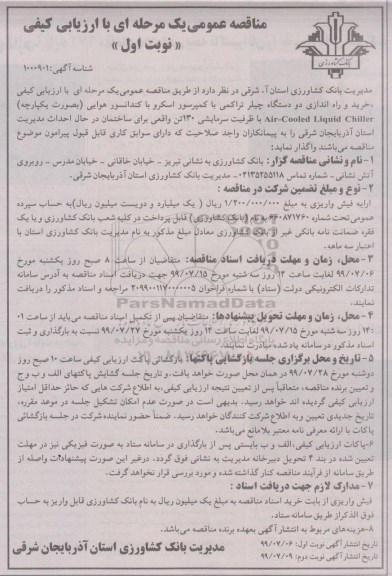 مناقصه عمومی یک مرحله ای با ارزیابی کیفی
« نوبت اول »
بانک کشاورزی
شناسه آگهی: ۱۰۰۰۹۰۱
مدیریت بانک کشاورزی استان آ. شرقی در نظر دارد از طریق مناقصه عمومی یک مرحله ای با ارزیابی کیفی
،خرید و راه اندازی دو دستگاه چیلر تراکمی با کمپرسور اسکرو با کندانسور هوایی (بصورت یکپارچه)
Air-Cooled Liquid Chiller با ظرفیت سرمایشی ۱۳۰تن واقعی برای ساختمان در حال احداث مدیریت
استان آذربایجان شرقی را به پیمانکاران واجد صلاحیت که دارای سوابق کاری قابل قبول پیرامون موضوع
مناقصه می‌باشند واگذار نماید:
۱- نام و نشانی مناقصه گزار: بانک کشاورزی به نشانی تبریز - خیابان خاقانی - خیابان مدرس - روبروی
آتش نشانی - شماره تماس ۰۴۱۳۵۲۵۵۱۱۸- مدیریت بانک کشاورزی استان آذربایجان شرقی.
۲- نوع و مبلغ تضمین شرکت در مناقصه :
ارایه فیش واریزی به مبلغ ۱/۲۰۰/۰۰۰/۰۰۰ ریال ( یک میلیارد و دویست میلیون ریال)به حساب سپرده
عمومی تحت شماره ۶۶۰۸۷۱۷۶۰ بنام (بانک کشاورزی) قابل پرداخت در کلیه شعب بانک کشاورزی و یا یک
فقره ضمانت نامه بانکی غیر از بانک کشاورزی معادل مبلغ مذکور به نام مدیریت بانک کشاورزی استان با
اعتبار سه ماهه.
۳- محل، زمان و مهلت دریافت اسناد مناقصه: متقاضیان از ساعت ۸ صبح روز یکشنبه مورخ
۹۹/۰۷/۰۶ لغایت ساعت ۱۴ روز سه شنبه مورخ ۹۹/۰۷/۱۵ جهت دریافت اسناد مناقصه به آدرس سامانه
تدارکات الکترونیکی دولت (ستاد) با شماره فراخوان ۲۰۹۹۰۰۱۱۷۰۰۰۰۰۵ مراجعه و اسناد مذکور را دریافت
نمایند.
۴- محل، زمان و مهلت تحویل پیشنهادها: متقاضیان پس از تکمیل اسناد مناقصه می‌باید از ساعت ۰۱
:۱۴ روز سه شنبه مورخ ۹۹/۰۷/۱۵ لغایت ساعت ۱۴ روز یکشنبه مورخ ۹۹/۰۷/۲۷ نسبت به بارگذاری و ثبت
اسناد مذکور در سامانه یاد شده مبادرت نمایند.
۵- تاریخ و محل برگزاری جلسه بازگشایی پاکتها: بازگشائی پاکت ارزیابی کیفی ساعت ۱۰ صبح روز
دوشنبه مورخ ۹۹/۰۷/۲۸ در همان محل صورت خواهد یافت. و تاریخ جلسه گشایش پاکتهای الف و ب و ج
و تعیین برنده مناقصه، متعاقباً پس از تعیین نتیجه ارزیابی کیفی، به اطلاع شرکت هایی که حائز حداقل امتیاز
ارزیابی کیفی گردیده اند خواهد رسید. بدیهی است در صورت عدم امکان تشکیل جلسه در موعد مقرره،
تاریخ جدیدی تعیین و به اطلاع شرکت کنندگان خواهد رسید. ضمناً حضور نماینده شرکت در جلسه بازگشائی
پاکات با ارائه معرفی نامه معتبر بلامانع می‌باشد.
۶-پاکات ارزیابی کیفی، الف و ب بایستی پس از بارگذاری در سامانه ستاد به صورت فیزیکی نیز در مهلت
تعیین شده در بند ۴ تحویل دبیرخانه مدیریت به نشانی فوق گردد. درغیر این صورت پیشنهادات واصله از
طریق سامانه از فرآیند مناقصه کنار گذاشته شده و مورد بررسی قرار نخواهد گرفت.
۷- مدارک لازم جهت دریافت اسناد :
فیش واریزی از بابت خرید اسناد مناقصه به مبلغ یک میلیون ریال به نام بانک کشاورزی قابل واریز به حساب
فوق الذکر از طریق سامانه ستاد.
۸-هزینه‌های مربوط به انتشار آگهی بعهده برنده مناقصه می‌باشد.
تاریخ انتشار آگهی نوبت اول: ۹۹/۰۷/۰۶
تاریخ انتشار آگهی نوبت دوم: ۹۹/۰۷/۰۹
مدیریت بانک کشاورزی استان آذربایجان شرقی
ParsNamadData